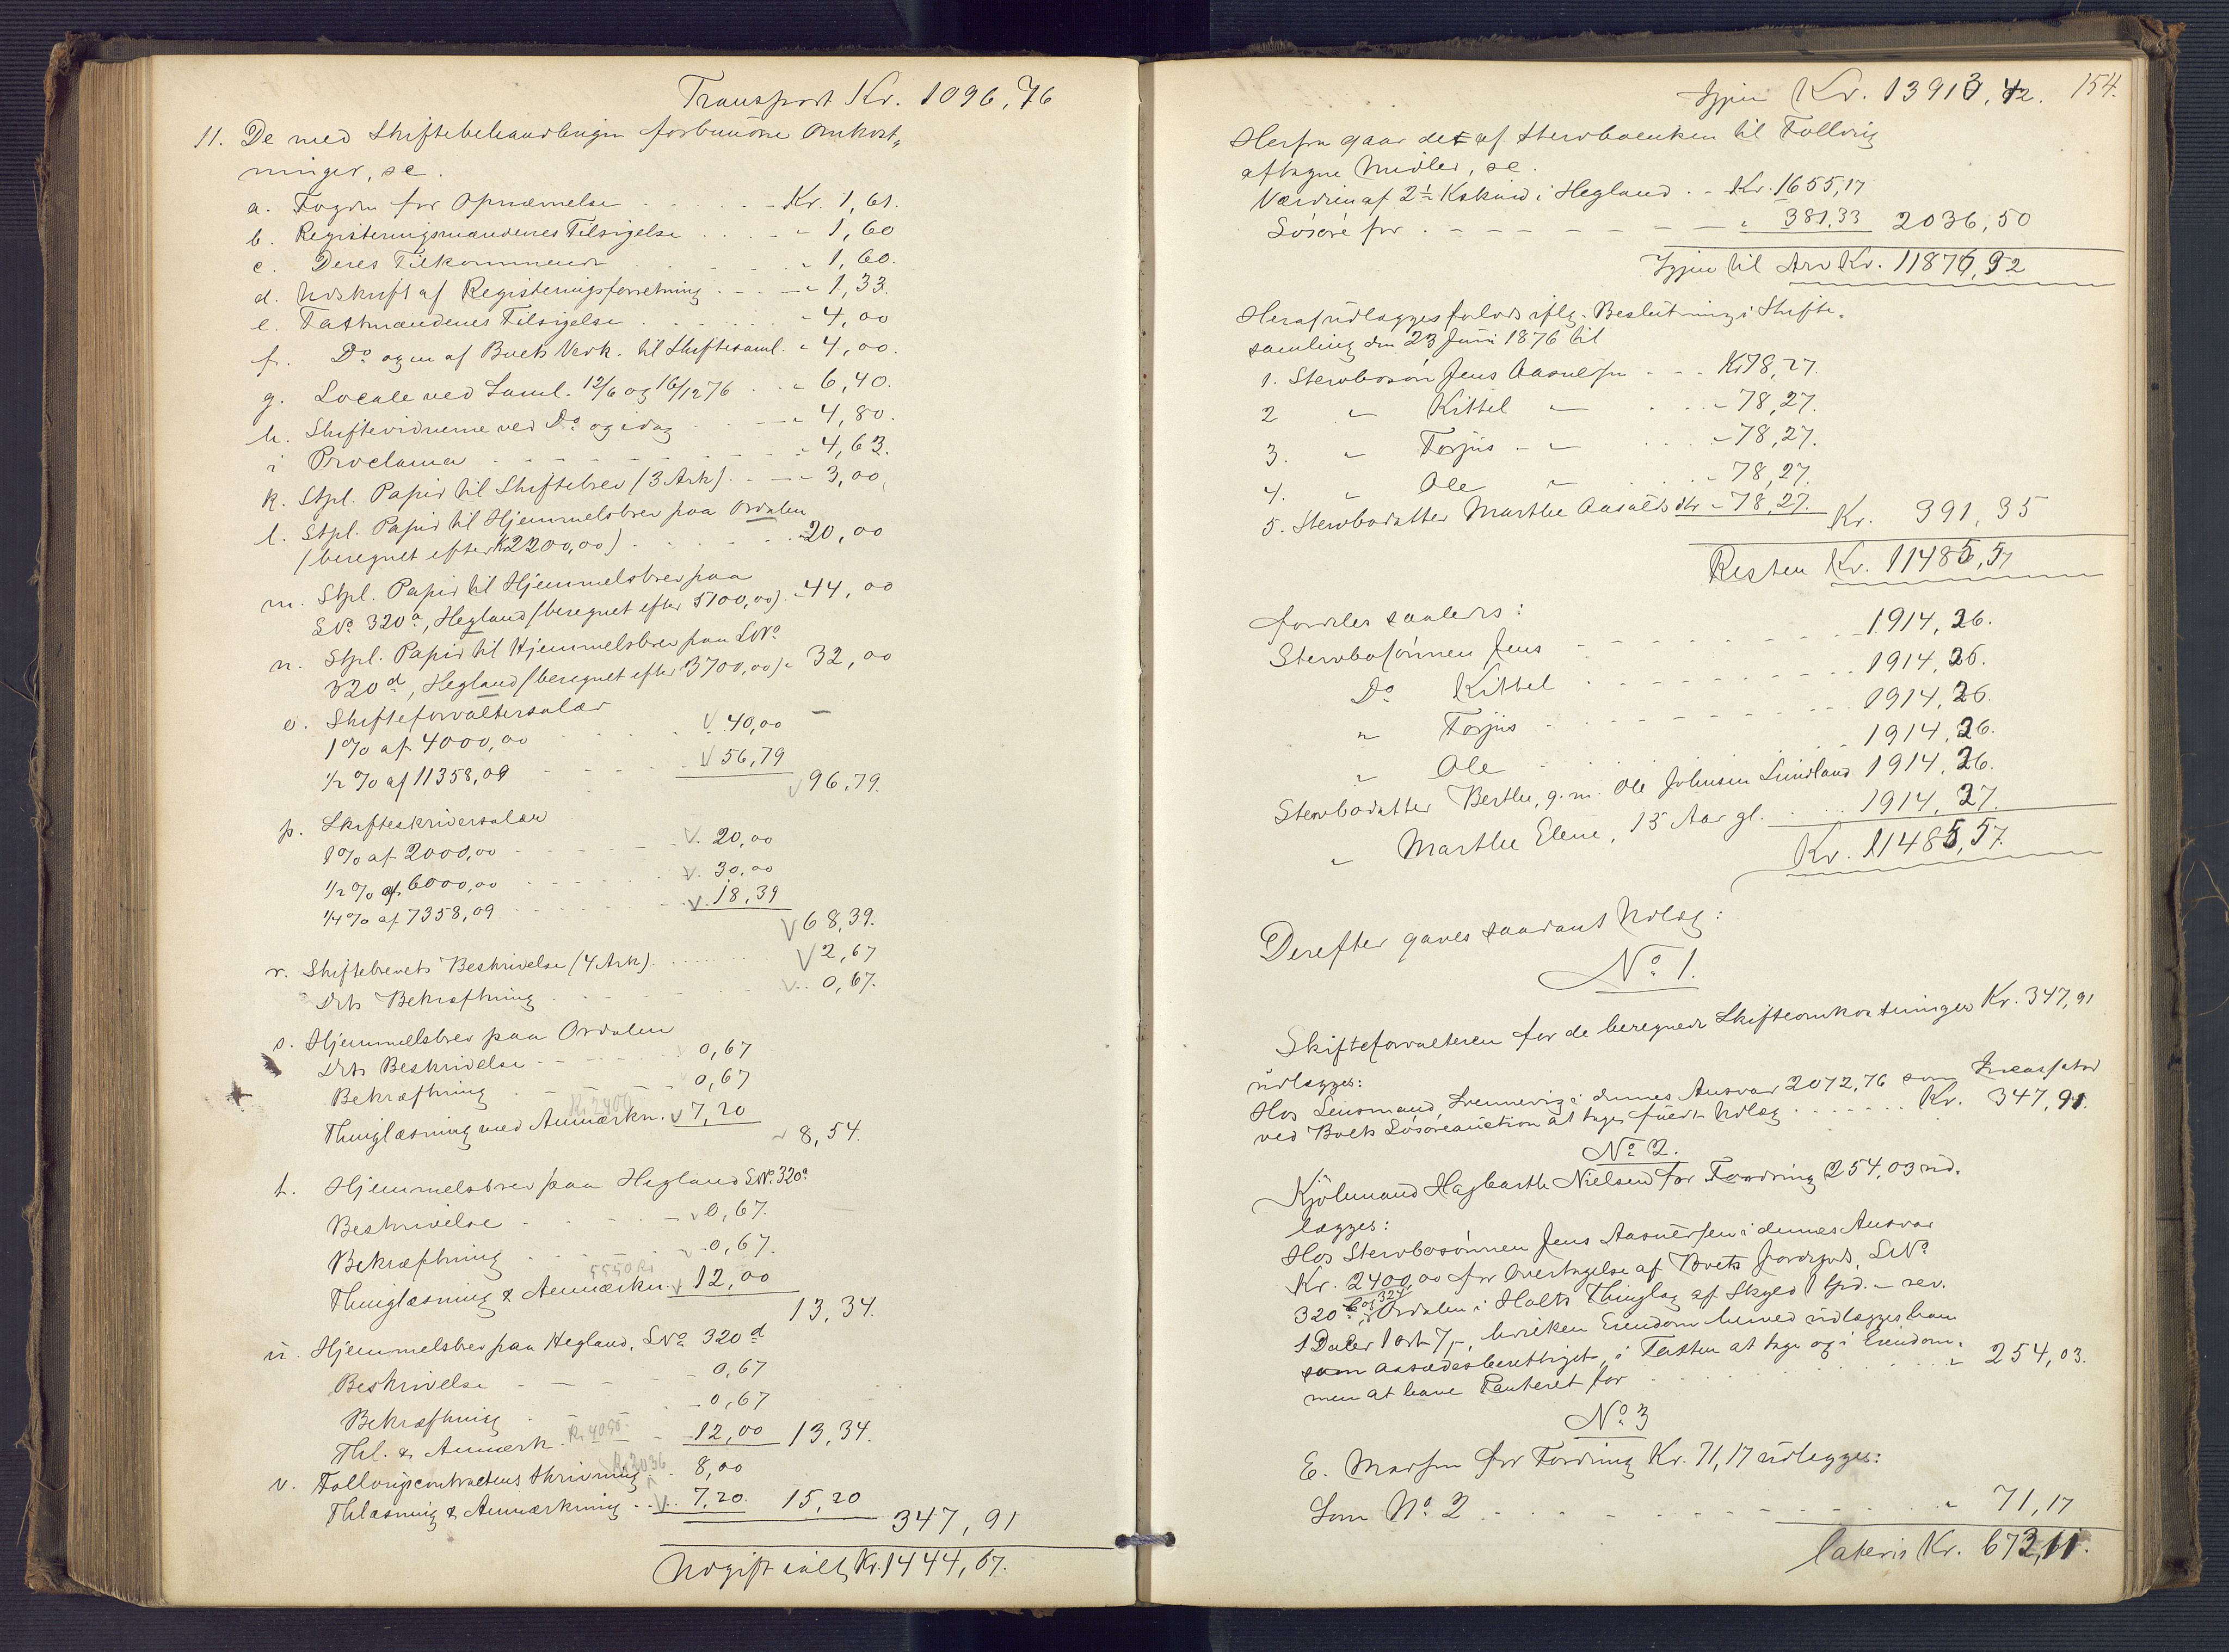 Transport Kr. 1096,76
11. De med Skiftebehandlingen forbundne Omkost-
ninger, se.
a. Fogden for Opnævnelse Kr. 1,61.
b. Registeringsmændenes Tilsigelse " 1,60
c. Deres Tilkommende " 1,60.
d. Udskrift af Registeringsforretning " 1,33.
e. Taxtmændenes Tilsigelse " 4,00
f. Do ogm af Boets Verk. til Skiftesaml. " 4,00.
g. Locale ved Saml. 12/6 og 16/12 76 " 6,40.
h. Skiftevidnerne ved Do og idag " 4,80.
i Proclama " 4,63.
k. Stpl. Papir til Skiftebrev (3 Ark) " 3,00,
l. Stpl. Papir til Hjemmelsbrev paa Ordalen
(beregnet efter Kr 2200,00) " 20,00
m. Stpl. Papir til Hjemmelsbrev paa
LNo 320a, Hegland (beregnet efter 5100,00) " 44,00
n. Stpl. Papir til Hjemmelsbrev paa LNo
320d, Hegland (beregnet efter 3700,00) " 32,00
o. Skifteforvaltersalær
1% af 4000,00 40,00 –
1/2% af 11358,09 56,79
96,79.
p. Skifteskriversalær
1% af 2000,00 20,00
1/2% af 6000,00 30,00
1/4% af 7358,09 18,39
68,39.
r. Skiftebrevets Beskrivelse (4 Ark) 2,67
Dets Bekræftning 0,67.
s. Hjemmelsbrev paa Ordalen
Dets Beskrivelse 0,67
Bekræftning 0,67
Kr 2400
Thinglæsning med Anmærkn. 7,20
8,54.
t. Hjemmelsbrev paa Hegland LNo. 320a
Beskrivelse 0,67.
Bekræftning 0,67.
5550 Kr
Thinglæsning & Anmærkn. 12,00
13,34.
u. Hjemmelsbrev paa Hegland, LNo 320d
Beskrivelse 0,67
Bekræftning 0,67
Thl. & Anmærk. Kr 4050 12,00 13,34.
Kr 2036
v. Follougscontractens Skrivning 8,00
Thlæsning & Anmærkning 7,20. 15,20
347,91
Udgift ialt Kr. 1444,67.
154.
Igjen Kr. 13913,42.
Herfra gaar det af Stervboenken til Folloug
aftagne Midler, se.
Værdien af 2½ Kskind i Hegland Kr. 1655,17
Løsøre for " 381,33 2036,50
Igjen til Arv Kr. 11876,92
Heraf udlægges forlods iflg. Beslutning i Skifte-
samling den 23 Juni 1876 til
1. Stervbosøn Jens Aasulfsn Kr 78,27.
2 " Kittel " " 78,27.
3. " Torjus " " 78,27.
4. " Ole " " 78,27.
5. Stervbodatter Marthe Aasulfsdtr " 78,27. Kr. 391,35
Resten Kr. 11485,57
fordeles saaledes:
Stervbosønnen Jens 1914,26.
Do Kittel 1914,26.
" Torjus 1914,26.
" Ole 1914,26.
Stervbodatter Berthe, g. m. Ole Johnsen Lindland 1914,26.
" Marthe Elene, 15 Aar gl. 1914,27.
Kr. 11485,57.
Derefter gaves saadant Udlæg:
No 1.
Skifteforvalteren for de beregnede Skifteomkostninger Kr. 347,91
udlægges:
Hos Lensmand Svennevig i dennes Ansvar 2072,76 som Incassator
ved Boets Løsøreauction at tages fuldt Udlæg Kr. 347,91.
No 2.
Kjøbmand Hagbarth Nielsen for Fordring 254,03 ud-
lægges:
Hos Stervbosønnen Jens Aasulfsen i dennes Ansvar
Kr. 2400,00 for Overtagelse af Boets Jordgods, LNo
320 b og 324 Ordalen i Holts Thinglag af Skyld 1 Spd. – rev.
1 Daler 1 ort 7 –, hvilken Eiendom herved udlægges ham
som aasædesberettiget, i Taxten at tage og i Eiendom-
men at have Panteret for " 254,03.
No 3
E. Marsen for Fordring Kr. 71,17 udlægges:
Som No 2 " 71,17
lateris Kr. 673,11.